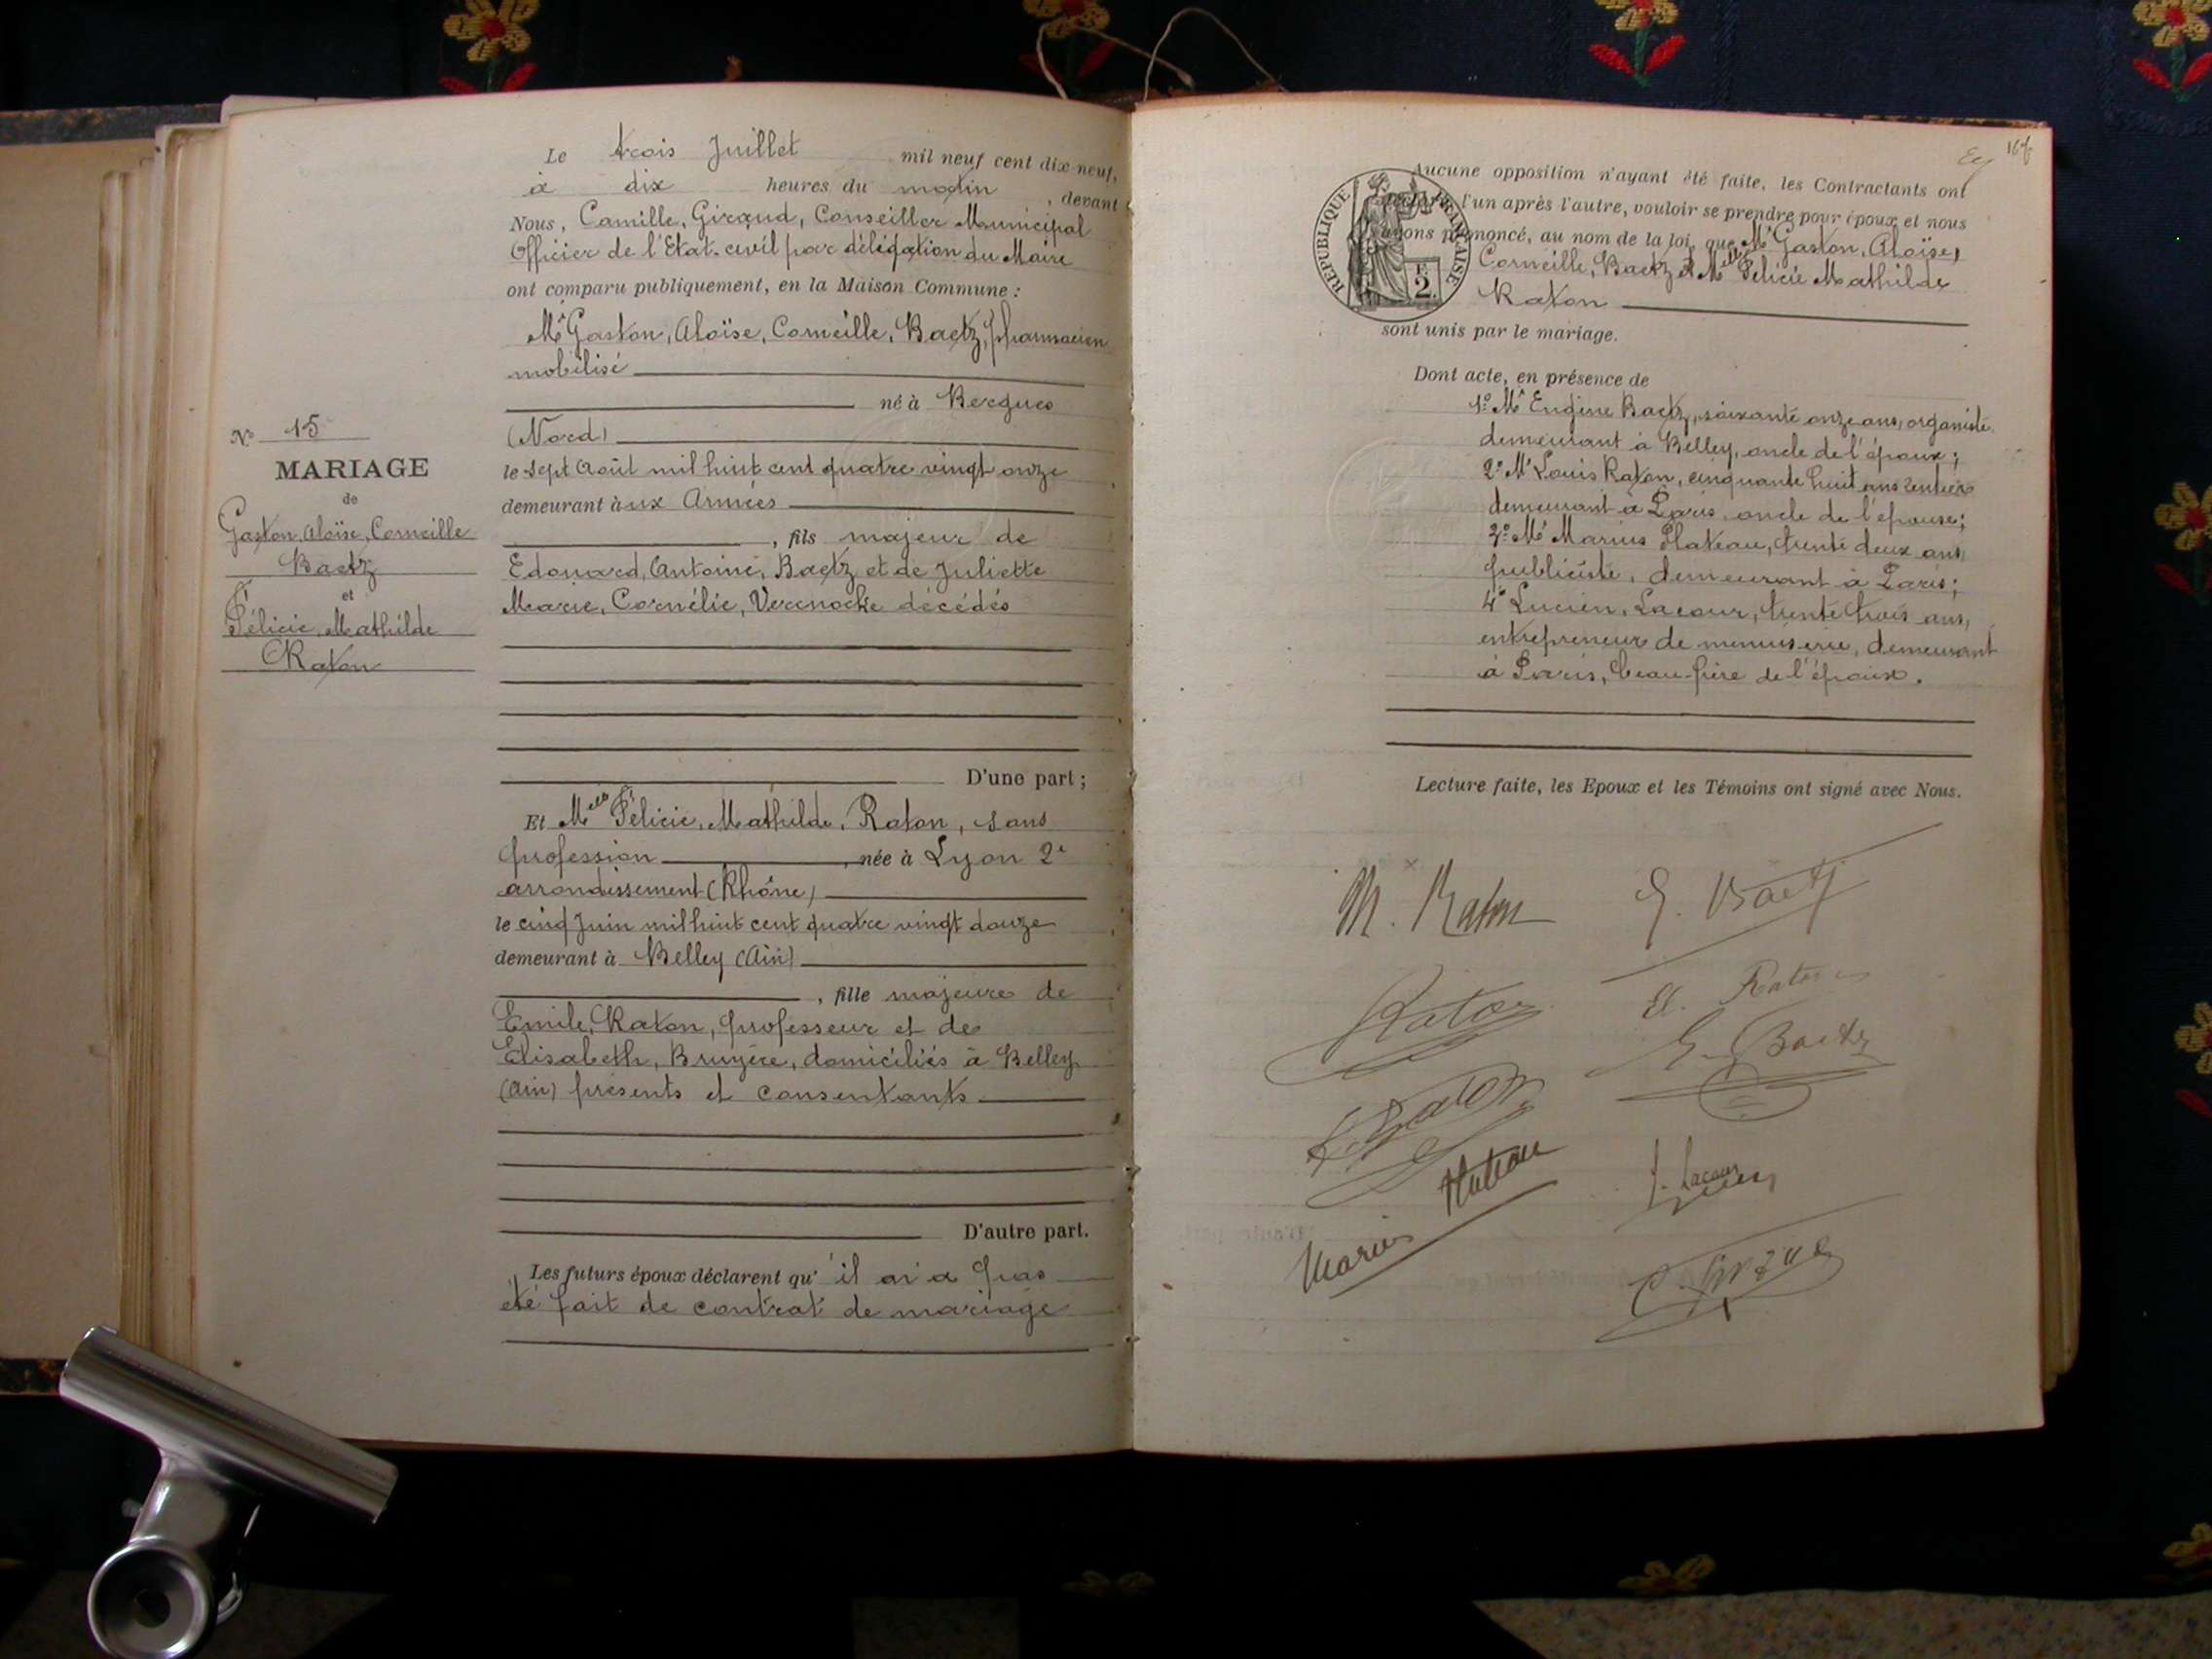 Le trois Juillet mil neuf cent dix-neuf,
à dix heures du matin, devant
Nous, Camille, Giraud, Conseiller Municipal
Officier de l'Etat-civil par délégation du Maire
ont comparu publiquement, en la Maison Commune :
Mr Gaston, Aloïse, Corneille, Baetz, pharmacien
mobilisé
né à Bergues
(Nord)
le sept Août mil huit cent quatre vingt onze
demeurant aux Armées
, fils majeur de
Edouard, Antoine, Baetz et de Juliette
Marie, Cornélie, décédés
D'une part ;
Et Melle Félicie, Mathilde, Raton, sans
profession, née à Lyon 2e
arrondissement (Rhône)
le cinq Juin mil huit cent quatre vingt douze
demeurant à Belley (Ain)
, fille majeure de
Emile, Raton, professeur et de
Elisabeth, Bruyère, domiciliés à Belley
(Ain) présents et consentants
D'autre part.
Les futurs époux déclarent qu'il n'a pas
été fait de contrat de mariage
No 15
MARIAGE
de
Gaston, Aloïse, Corneille
Baetz
et
Félicie, Mathilde
Raton
167
REPUBLIQUE FRANÇAISE
2
Aucune opposition n'ayant été faite, les Contractants ont
l'un après l'autre, vouloir se prendre pour époux et nous
avons prononcé, au nom de la loi, que Mr Gaston, Aloïse,
Corneille, Baetz et Melle Félicie Mathilde
Raton
sont unis par le mariage.
Dont acte, en présence de
1o Mr Eugène Baetz, soixante onze ans, organiste
demeurant à Belley, oncle de l'époux ;
2o Mr Louis Raton, cinquante huit ans rentier
demeurant à Paris, oncle de l'épouse ;
3o Mr Marius Plateau, trente deux ans,
publiciste, demeurant à Paris ;
4o Lucien, Lacour, trente trois ans,
entrepreneur de menuiserie, demeurant
à Paris, beau-frère de l'époux.
Lecture faite, les Epoux et les Témoins ont signé avec Nous.
M. Raton G. Baetz
Raton El. Raton
E. Baetz
L. Raton
Marius Plateau
L. Lacour
C. Giraud